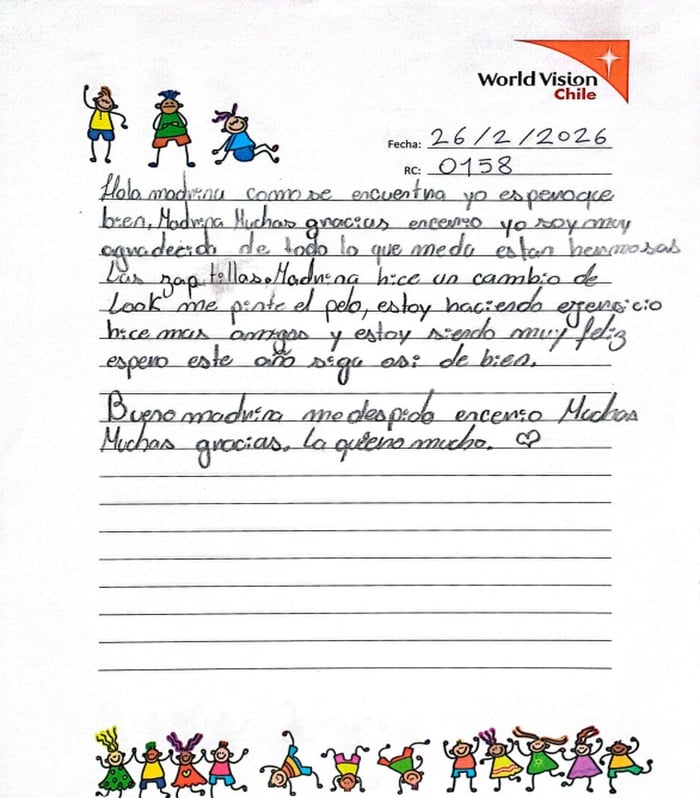 World Vision
Chile
Fecha: 26/2/2026
RC: 0158
Hola madrina como se encuentra yo esperoque
bien, Madrina Muchas gracias enserio yo soy muy
agradecida de todo lo que meda estan hermosas
Las zapatillas. Madrina hice un cambio de
Look me pinte el pelo, estoy haciendo ejercicio
hice mas amigas y estoy siendo muy feliz
espero este año siga asi de bien.
Bueno madrina medespido enserio Muchas
Muchas gracias. La quiero mucho. ♡